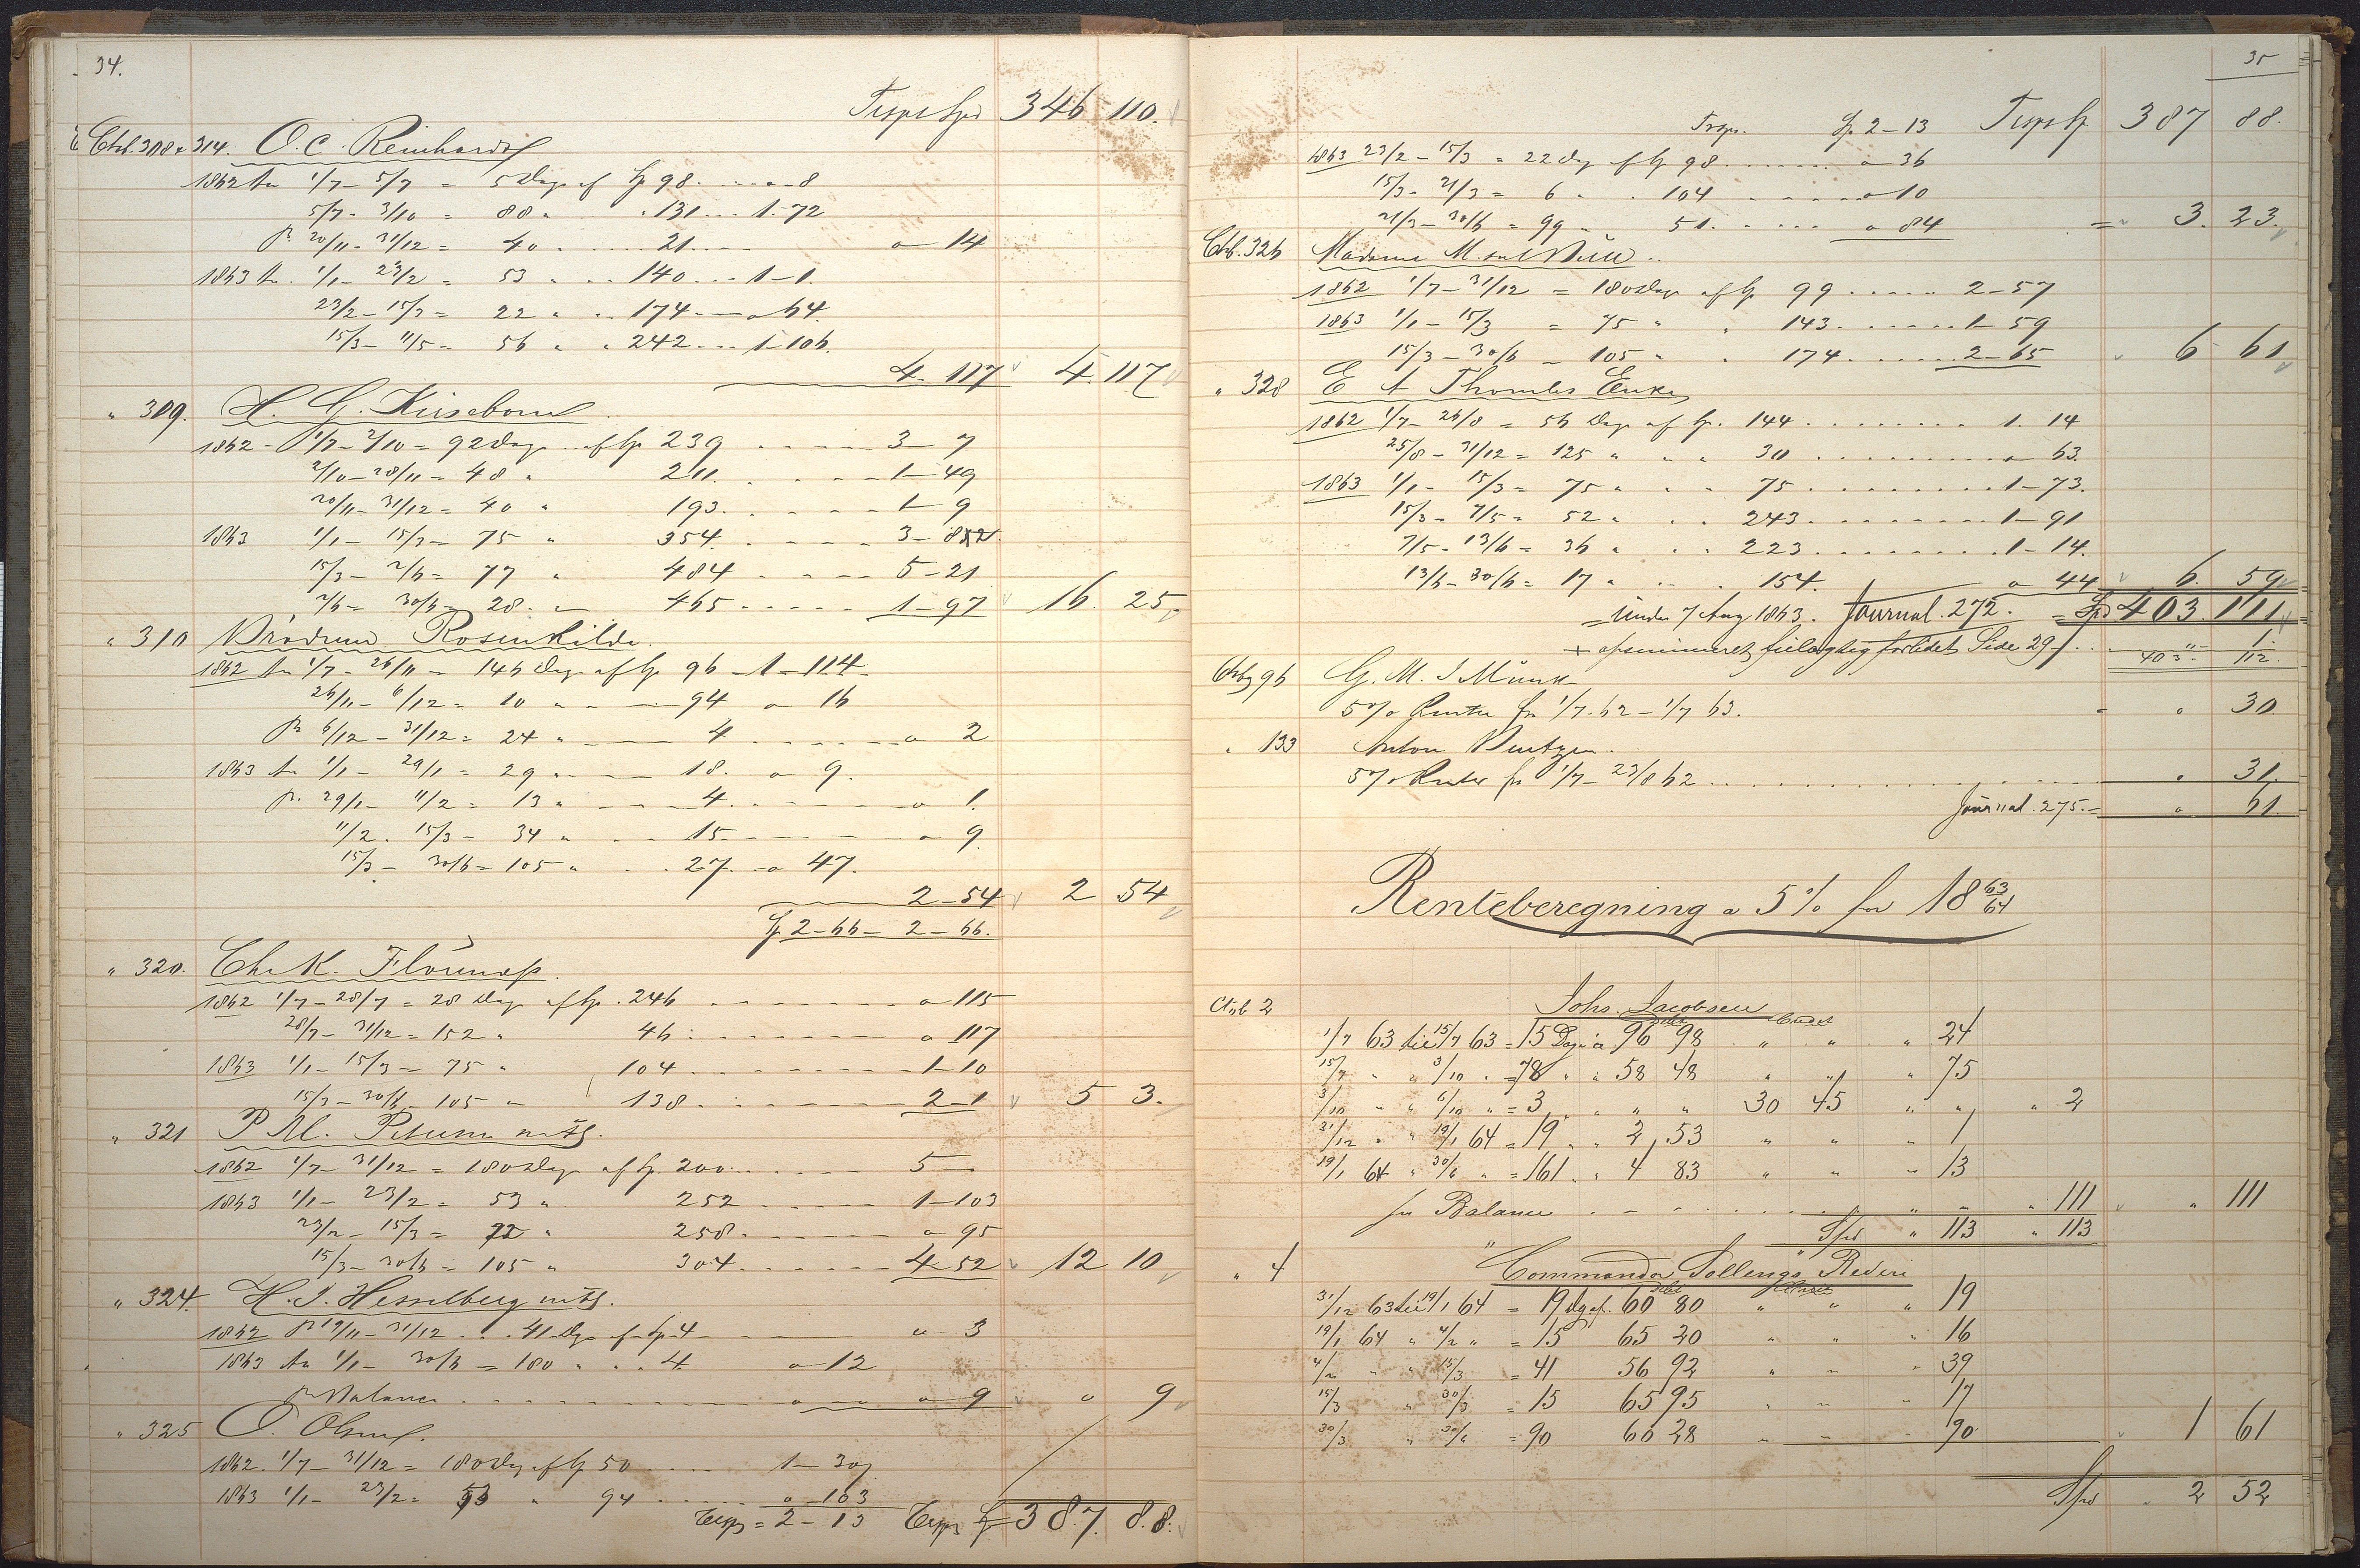 34.
Trspt Spd 346 110.
Ctrb. 308 & 314. O. C. Reinhardt
1862 1/7 - 5/7 = 5 Dage af Sp 98 . . . . " - 8
5/7 - 3/10 = 88 " " 131 . . . 1 - 72
20/11 - 31/12 = 40 . . . . 21 . . . " 14
1863 1/1 - 23/2 = 53 " . . 140 . . . 1 - 1.
23/2 - 15/3 = 22 " . . 174 - - " 64.
15/3 - 11/5 = 56 " " 242 . . . 1 - 106.
4. 117 4. 117
" 309.
1862 - 1/7 - 2/10 = 92 Dage af Sp 239 . . . . 3 - 7
2/10 - 20/11 = 48 " 211. . . . . 1 - 49
20/11 - 31/12 = 40 " 193. . . . . 1 - 9
1863 1/1 - 15/3 = 75 " 354. . . . .
15/3 - 2/6 = 77 " 484 . . . . 5 - 21
2/6 - 30/6 = 28. " 465 . . . . 1 - 97 16. 25
" 310 Brødrene Rosenkilde
1862 1/7 - 26/11 = 146 Dage af Sp 96 - 1 - 114.
26/11 - 6/12 = 10 " " 94 " 16
6/12 - 31/12 = 24 " 4 . . . . " 2
1863 1/1 - 29/1 = 29 " 18. " 9.
29/1 - 11/2 = 13 " 4. . . . . " 1.
11/2 - 15/3 = 34 " . . 15. - - - " 9.
15/3 - 30/6 = 105 " . . 27. " 47.
2 - 54 2 54
Sp 2 - 66 - 2 - 66.
" 320. Chr K.
1862 1/7 - 28/7 = 28 Dage af Sp. 246 . . . . " 115
28/7 - 31/12 = 152 " 46 . . . . " 117
1863 1/1 - 15/3 = 75 " 104 . . . . 1 - 10
15/3 - 30/6 = 105 " 138 . . . . 2 - 1 5 3.
" 321 P M.
1862 1/7 - 31/12 = 180 Dage af Sp. 200 . . . . 5 -
1863 1/1 - 23/2 = 53 " 252 . . . . 1 - 103
23/2 - 15/3 = 22 " 258. . . . . " 95
15/3 - 30/6 = 105 " 304. . . . . 4 - 52 12 10
" 324. H. J. Hesselberg
1862 19/11 - 31/12 . . 41 Dge af Sp 4 " 3
1863 1/1 - 30/6 = 180 " . . 4 " 12
pr Balance . . . . " " 9 " 9
" 325 O. Olsen
1862. 1/7 - 31/12 = 180 Dag af Sp 50 . . . . 1 - 30
1863 1/1 - 23/2 = 53 " 94 . . . . " 103
Trsp = 2 - 13 Trsp Sp 387. 88.
35
Trspr. Sp 2 - 13 Trspt Sp 387 88.
1863 23/2 - 15/3 = 22 Dag af Sp 98 . . . . " 36
15/3 - 21/3 = 6 " . 104 . . . . " 10
21/3 - 30/6 = 99 " 51. . . . . " 84 = 3. 23.
Ctrb. 326 Madame M.
1862 1/7 - 31/12 = 180 Dage af Sp 99 . . . . 2 - 57
1863 1/1 - 15/3 = 75 " " 143. . . . . 1 - 59
15/3 - 30/6 = 105 " " 174. . . . . 2 - 65 6 61
" 328 E A Thomles Enke
1862 1/7 - 26/8 = 56 Dage af Sp. 144 . . . . 1. 14
25/8 - 31/12 = 125 " " " 30 . . . . " 63.
1863 1/1 - 15/3 = 75 " " " 75 . . . . 1 - 73.
15/3 - 7/5 = 52 " . . 243. . . . . 1 - 91
7/5 - 13/6 = 36 " . . 223 . . . . 1 - 14.
13/6 - 30/6 = 17 " . . 154. " 44 6. 59
= Under 7 Aug 1863. Journal. 272. = Spd 403. 111
+ opsummeret feilagtig forlidet Side 29 . . " 1.
403. 112.
Ctrb 96 G. M. J Munk
5% Renter fra 1/7. 62 - 1/7 63. = " 30
" 133 Anton Berntzen
5% Renter fra 1/7 - 23/8 62 . . . . " 31.
Journal. 275. = " 61.
Renteberegning a 5% for 18 63/64
Ctrb 2 Johs. Jacobsen
Debet Credet
1/7 63 til 15/7 63 = 15 Dage a 96 98 " " " 24
15/7 " " 3/10 " = 78 " " 58 48 " " " 75
3/10 " " 6/10 " = 3 " " " " 30 45 " " " 2
31/12 " " 19/1 64 = 19 " " 2 53 " " " 1
19/1 64 " 30/6 " = 161 " " 4 83 " " " 13
for Balance . . . . " " " 111 " 111
Spd " 113 " 113
" 4 Commandør Sollings Rederi
Debet Credet
31/12 63 til 19/1 64 = 19 dg af. 60 80 " " " 19
19/1 64 " 4/2 " = 15 65 20 " " " 16
4/2 " " 15/3 = 41 56 92 " " " 39
15/3 " 30/3 = 15 65 95 " " " 17
30/3 " 30/6 = 90 66 28 " " " 90 1 61
Spd 2 52